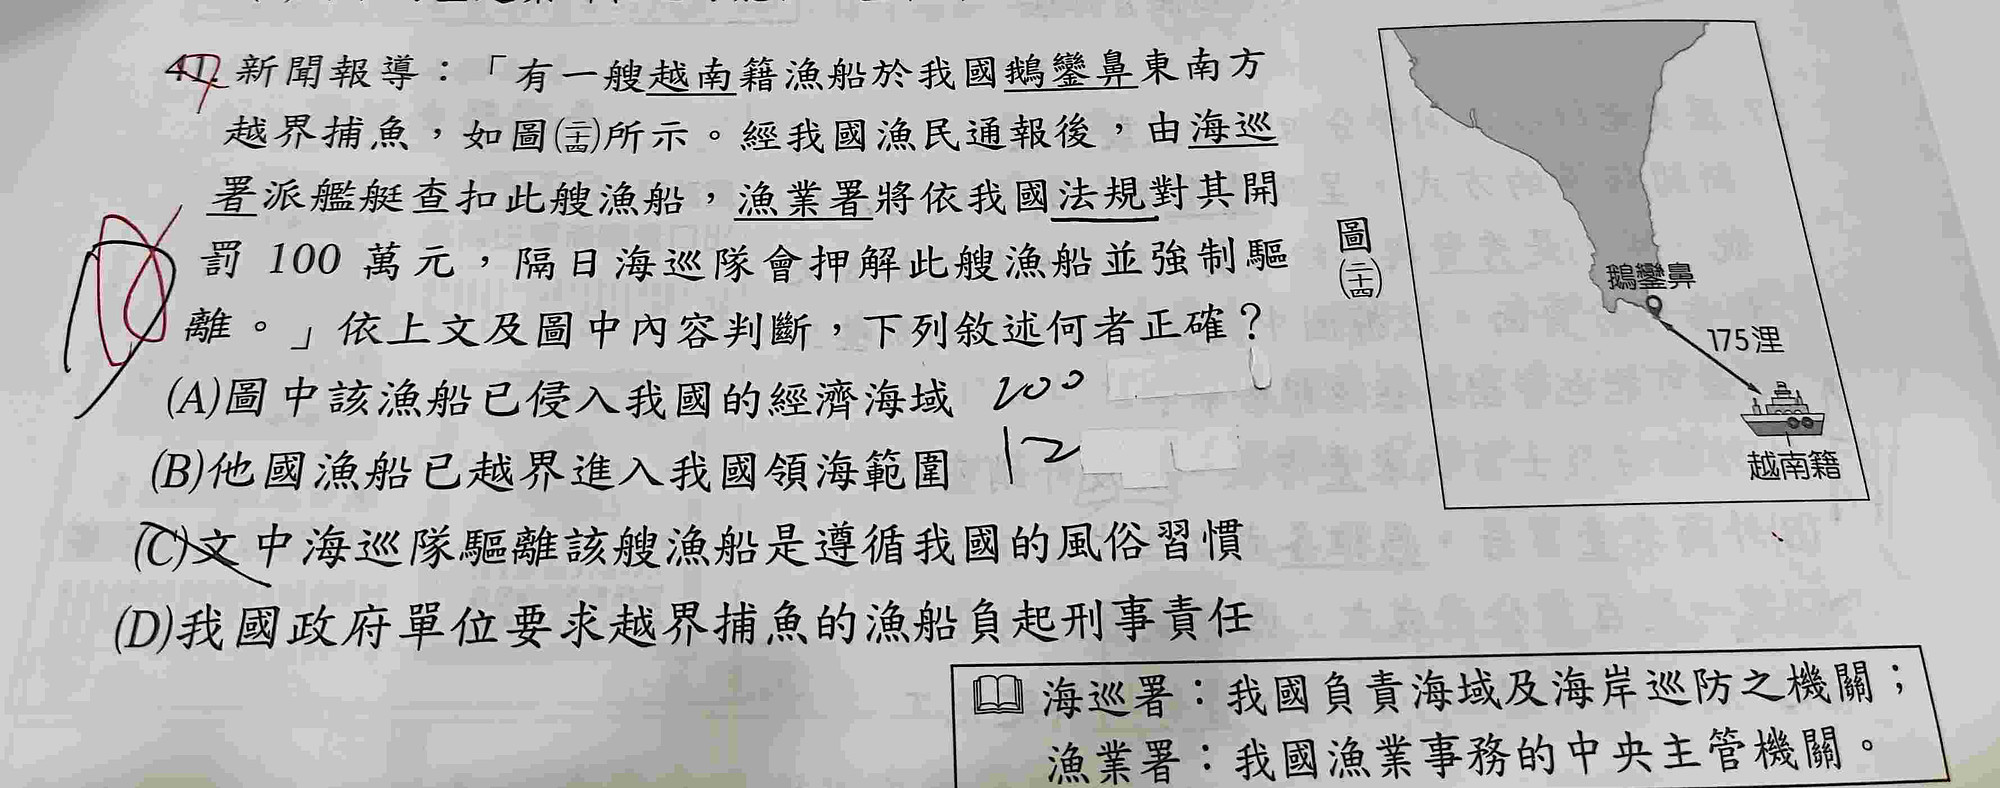 41. 新聞報導：「有一艘越南籍漁船於我國鵝鑾鼻東南方
越界捕魚，如圖(二十四)所示。經我國漁民通報後，由海巡
署派艦艇查扣此艘漁船，漁業署將依我國法規對其開
罰 100 萬元，隔日海巡隊會押解此艘漁船並強制驅
離。」依上文及圖中內容判斷，下列敘述何者正確？
(A)圖中該漁船已侵入我國的經濟海域 200
(B)他國漁船已越界進入我國領海範圍 12
(C)文中海巡隊驅離該艘漁船是遵循我國的風俗習慣
(D)我國政府單位要求越界捕魚的漁船負起刑事責任
圖(二十四)
鵝鑾鼻
175浬
越南籍
海巡署：我國負責海域及海岸巡防之機關；
漁業署：我國漁業事務的中央主管機關。